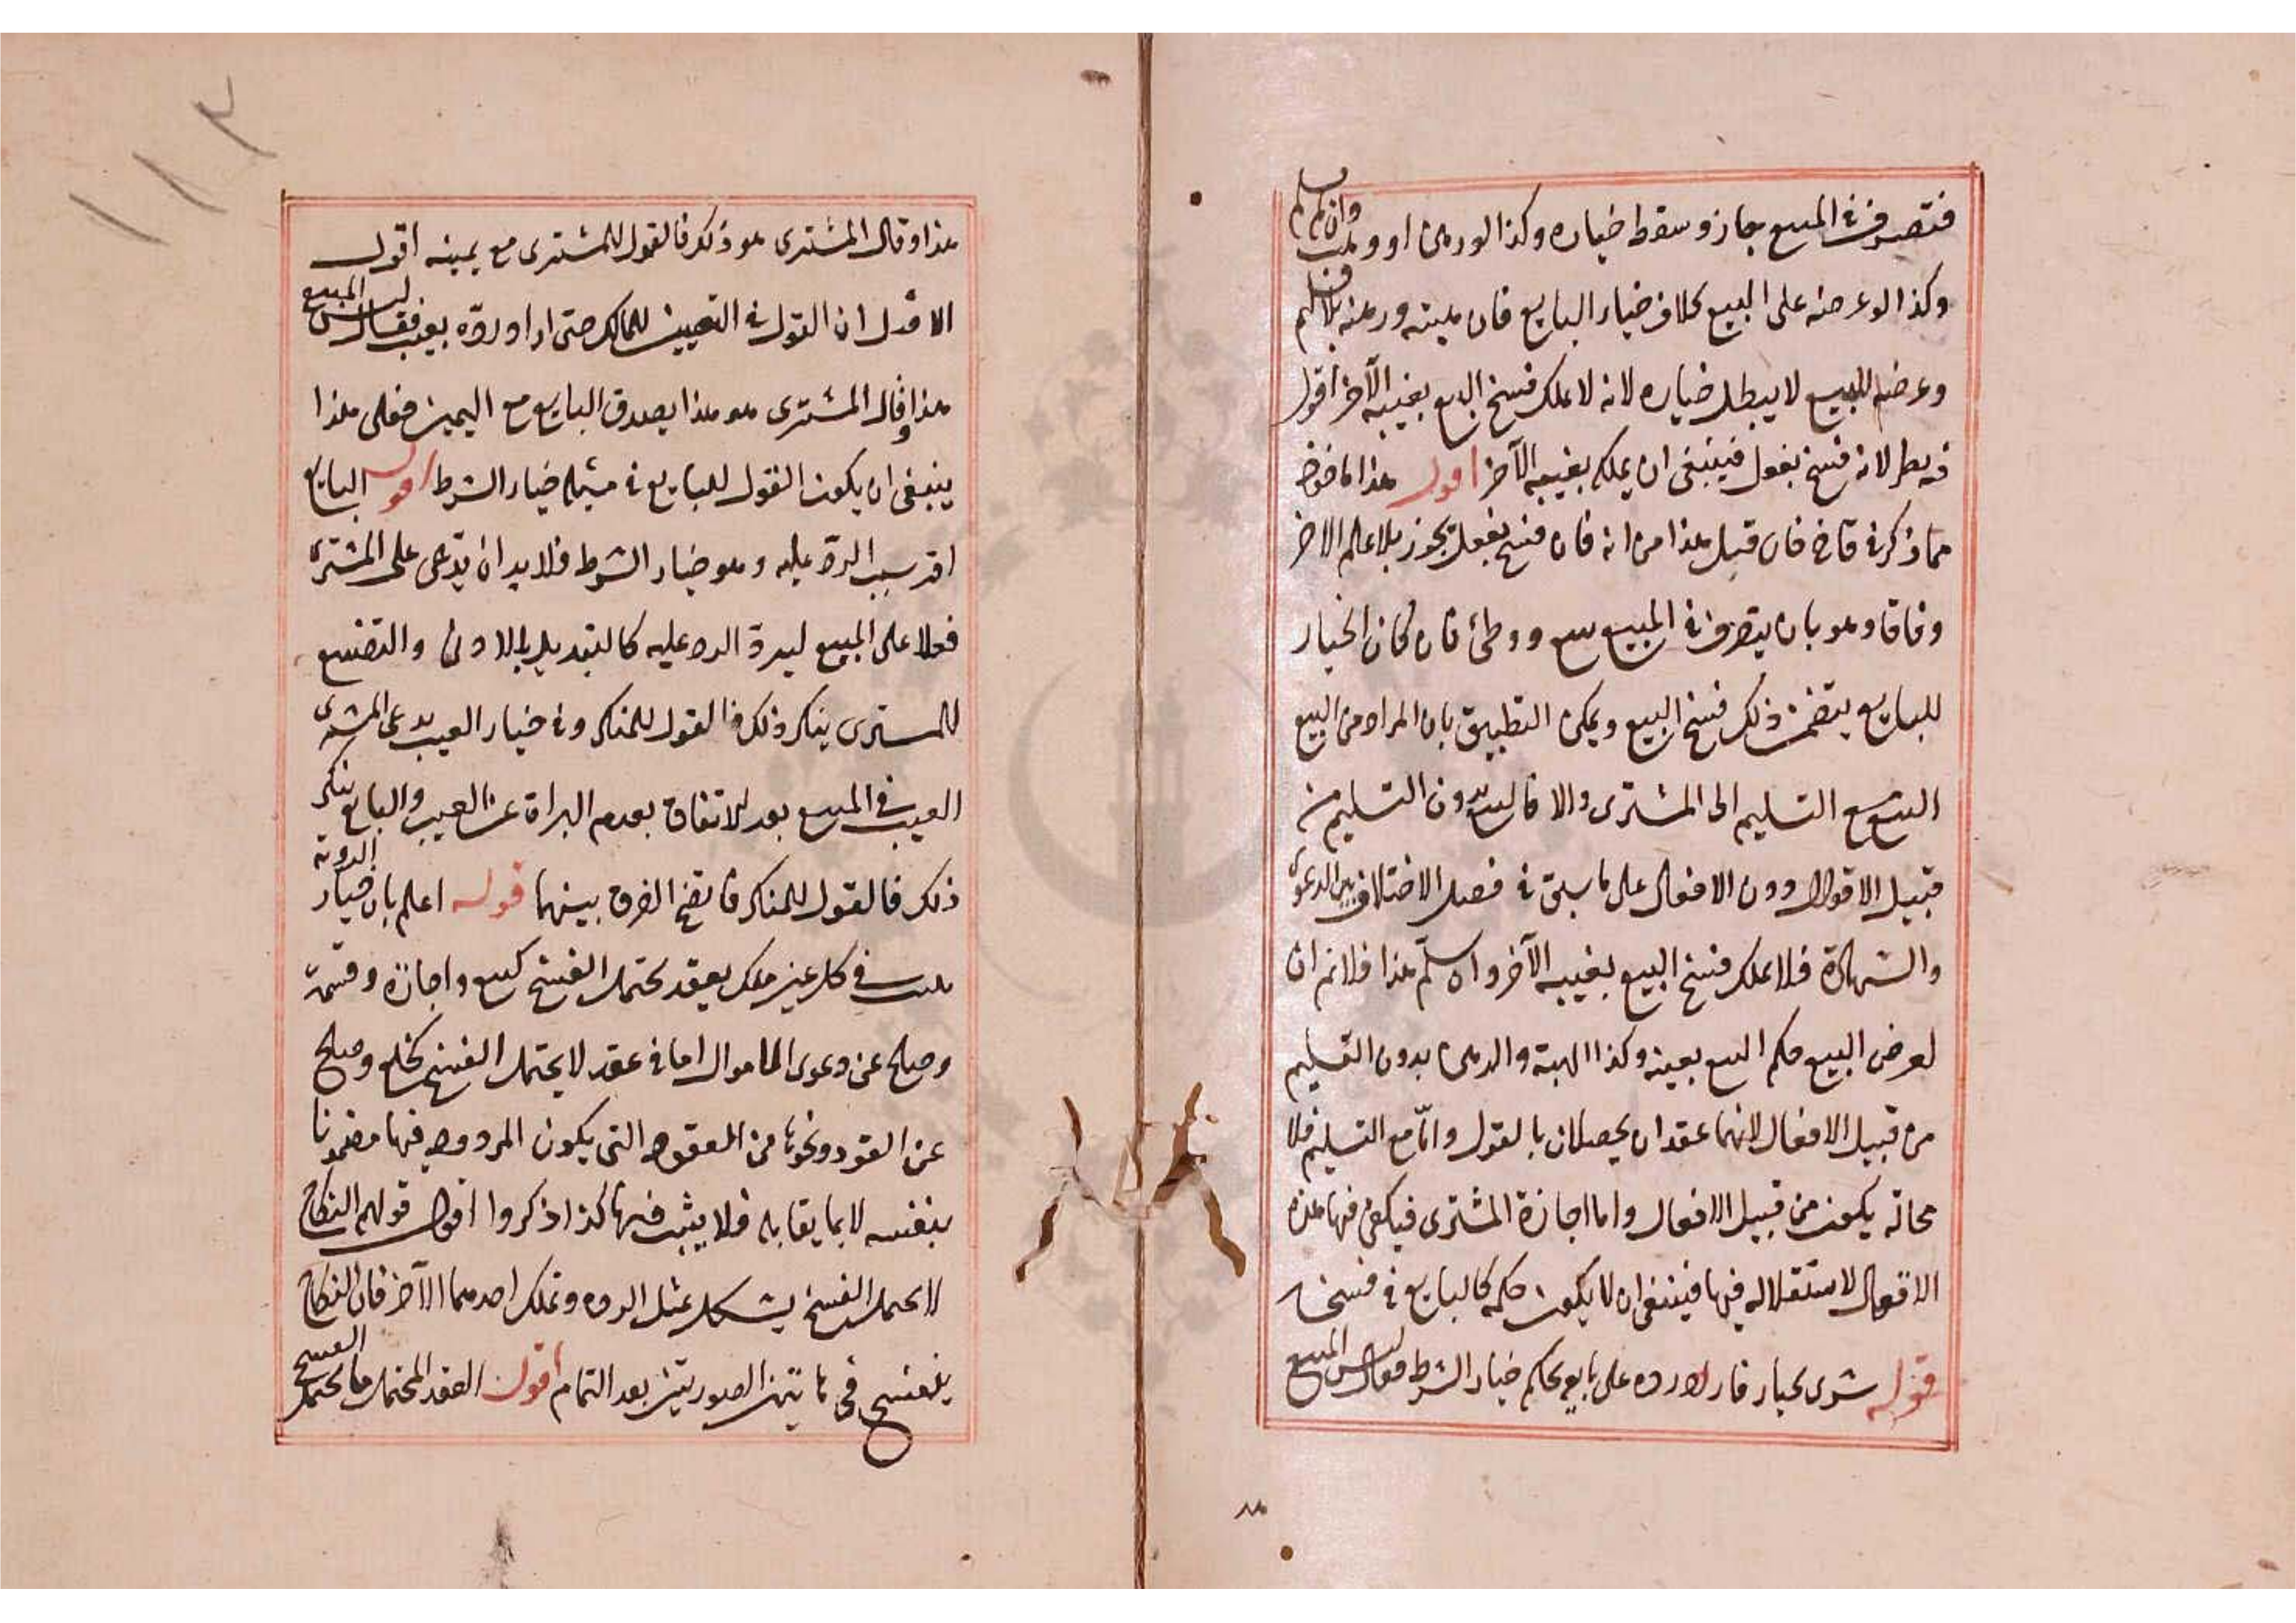 فتصرف في المبيع جاز وسقط خياره وكذا لو رهن او وهب وان لم يسلم
وكذا لو عرضه على البيع بخلاف خيار البايع فان هبته ورهنه بلا تسليم
وعرضه للبيع لا يبطل خياره لانه لا يملك فسخ البيع بغيبة الآخر اقول
فيه نظر لانه فسخ بفعل فينبغي ان يملكه بغيبة الآخر اقول هذا ماخوذ
مما ذكر في قاضخان قبل هذا من انه فان فسخ بفعل يجوز بلا علم الاخر
وفاقا وهو بان يتصرف في المبيع ببيع ووطئ فان كان الخيار
للبايع يتضمن ذلك فسخ البيع ويمكن التطبيق بان المراد من البيع
البيع مع التسليم الى المشترى والا فالبيع بدون التسليم من
قبيل الاقوال دون الافعال على ما سبق في فصل الاختلاف بين الدعوى
والشهادة فلا يملك فسخ البيع بغيبة الآخر وان سلم هذا فلا نم ان
لعرض البيع حكم البيع بعينه وكذا الهبة والرهن بدون التسليم
من قبيل الافعال لانهما عقدان يحصلان بالقول واما مع التسليم فلا
محالة يكون من قبيل الافعال واما اجازة المشترى فيكفى فيها هذه
الاقوال لاستقلاله فيها فينبغى ان لا يكون حكمه كالبايع في فسخه
قوله شرى بخيار فاراد رده على بايعه بحكم خيار الشرط فقال ليس المبيع
١١٢
هذا وقال المشترى هو ذلك فالقول للمشترى مع يمينه اقول
الاصل ان القول في التعيين للمالك حتى اذا اورده بعيب فقال ليس المبيع
هذا وقال المشترى هو هذا يصدق البايع مع اليمين فعلى هذا
ينبغى ان يكون القول للبايع في مسئلة خيار الشرط اقول البايع
اقر بسبب الرد عليه وهو خيار الشرط فلا بد ان يدعى على المشترى
فعلا على المبيع ليرد الرد عليه كالتبديل بالادنى والتضييع
للمشترى ينكر ذلك فالقول للمنكر وفي خيار العيب يدعى المشترى
العيب في المبيع بعد الاتفاق بعدم البراة عن العيب والبايع ينكر
ذلك فالقول للمنكر فاتضح الفرق بينهما قوله اعلم بان خيار الرؤية
يثبت في كل عين ملك بعقد يحتمل الفسخ كبيع واجارة وقسمة
وصلح عن دعوى المال اموال اما في عقد لا يحتمل الفسخ كخلع وصلح
عن القود ونحوها من العقود التى يكون المردود فيها مضمونا
بنفسه لا بما يقابله فلا يثبت فيها كذا ذكروا اقول قولهم النكاح
لا يحتمل الفسخ يشكل بمثل الرده وتملك احدهما الآخر فان النكاح
ينفسخ في هاتين الصورتين بعد التمام اقول العقد المحتمل ما يحتمل الفسخ